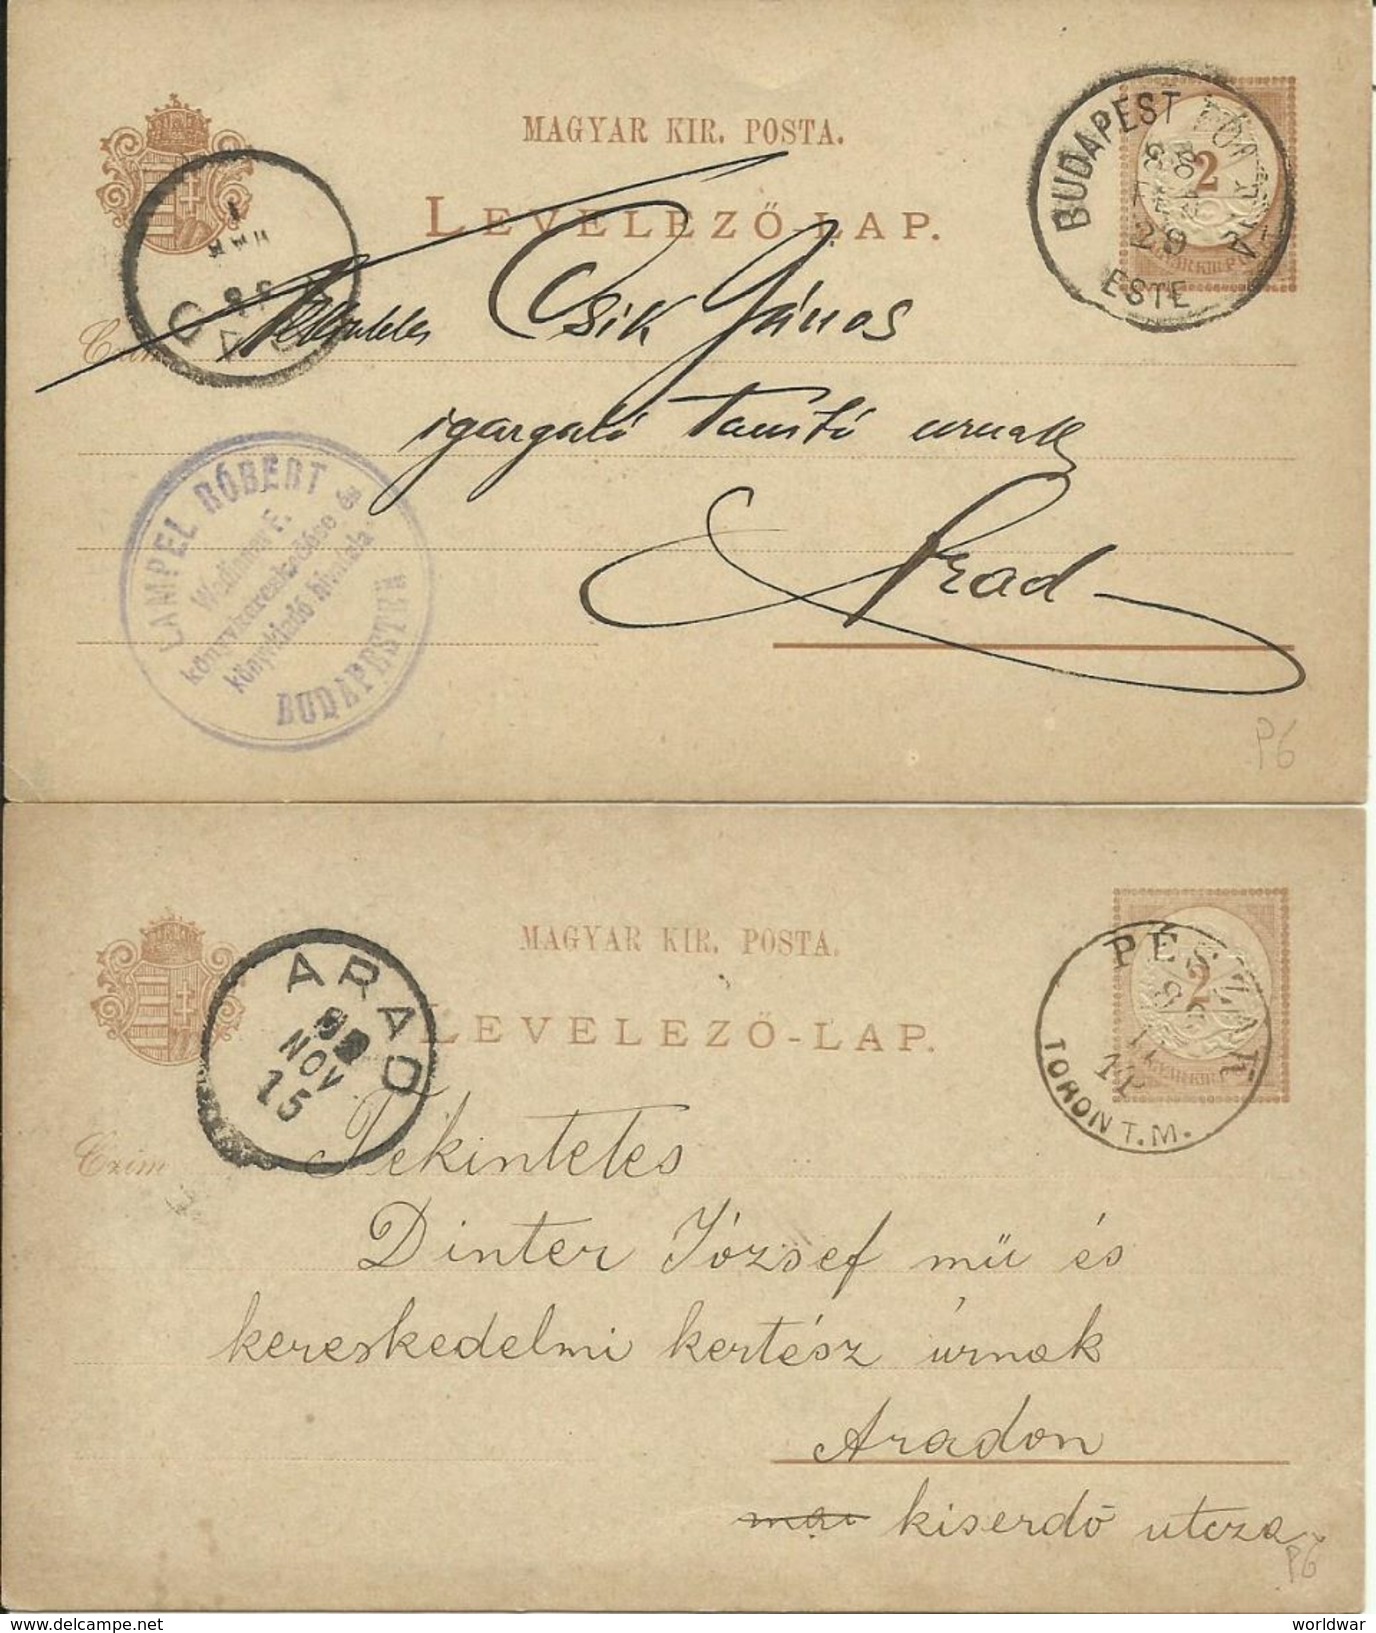 MAGYAR KIR. POSTA.
LEVELEZŐ-LAP.
BUDAPEST
88
29
ESTE
2
Czim
Csik János
igazgató tanító urnak
Arad
LAMPEL RÓBERT
könyvkereskedése és
könyvkiadó hivatala
BUDAPESTEN
P6
MAGYAR KIR. POSTA.
LEVELEZŐ-LAP.
ARAD
NOV
15
TORONT.M.
2
Czim
Tekintetes
Dinter József mü és
kereskedelmi kertész úrnak
Aradon
kiserdő utcza
P6
worldwar